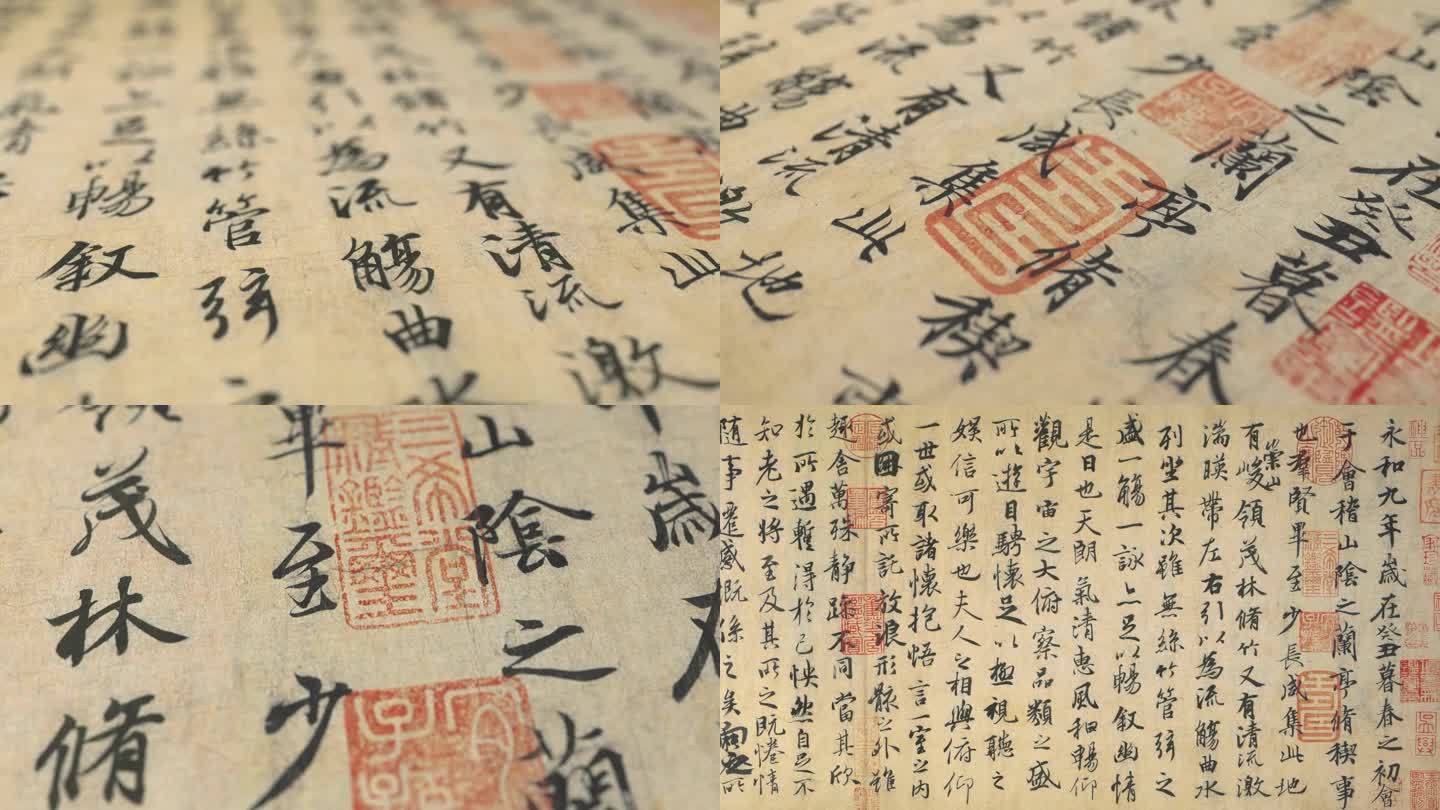 咸集此
竹又有清流激
引以為流觴曲水
無絲竹管弦之
亦足以暢叙幽
在癸丑暮春
山陰之蘭亭脩禊
少長咸集此地
竹又有清流
為流觴曲
歲在
山陰之蘭
畢至少
領茂林脩
永和九年歲在癸丑暮春之初會
于會稽山陰之蘭亭脩禊事
也羣賢畢至少長咸集此地
有崇山峻領茂林脩竹又有清流激
湍暎帶左右引以為流觴曲水
列坐其次雖無絲竹管弦之
盛一觴一詠亦足以暢叙幽情
是日也天朗氣清惠風和暢仰
觀宇宙之大俯察品類之盛
所以遊目騁懷足以極視聽之
娛信可樂也夫人之相與俯仰
一世或取諸懷抱悟言一室之內
或因寄所託放浪形骸之外雖
趣舍萬殊靜躁不同當其欣
於所遇暫得於己怏然自足不
知老之將至及其所之既惓情
隨事遷感慨係之矣向之所